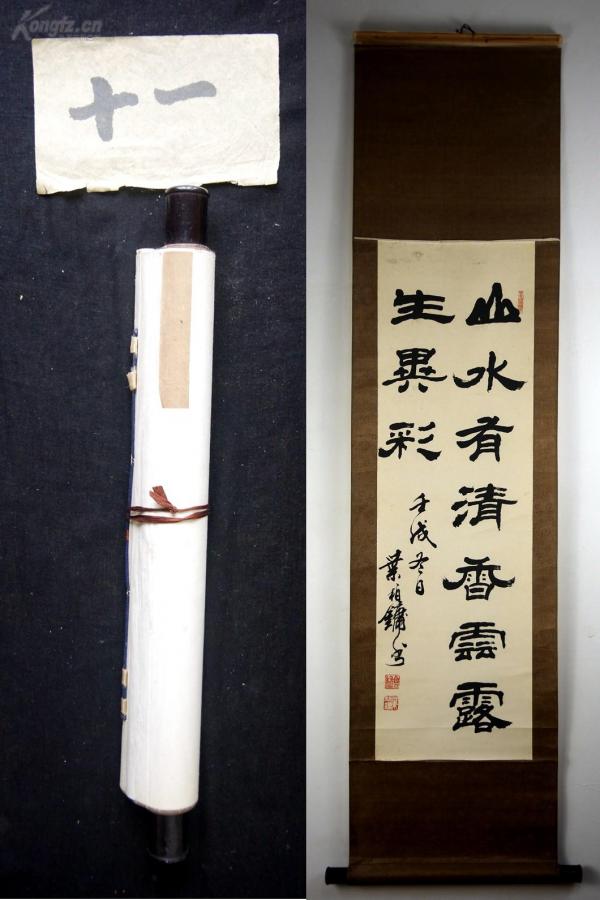 Kongfz.cn
十一
山水有清香雲露
生異彩
壬戌冬日
葉柏鏞書